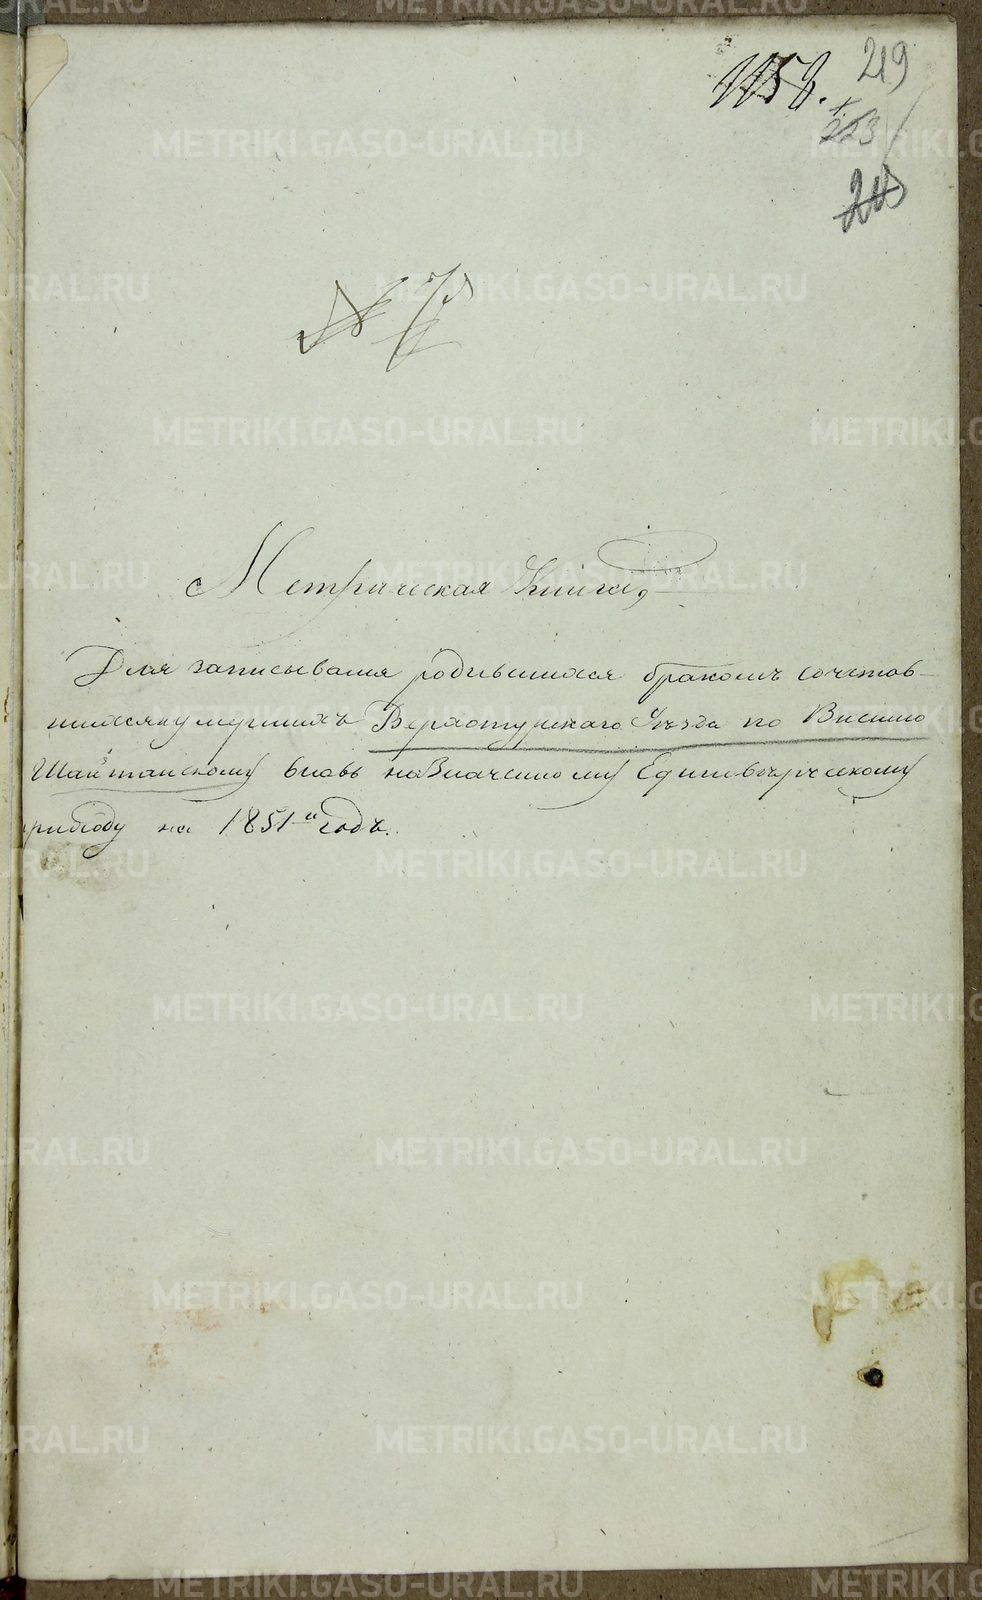 219
1158.
223
213
№ 7
Метрическая Книга,
Для записывания родившихся бракомъ сочетав-
шихся и умершихъ Верхотурскаго Уѣзда по Висимо
Шайтанскому вновь назначенному Единовѣрческому
приходу на 1851й годъ.
METRIKI.GASO-URAL.RU